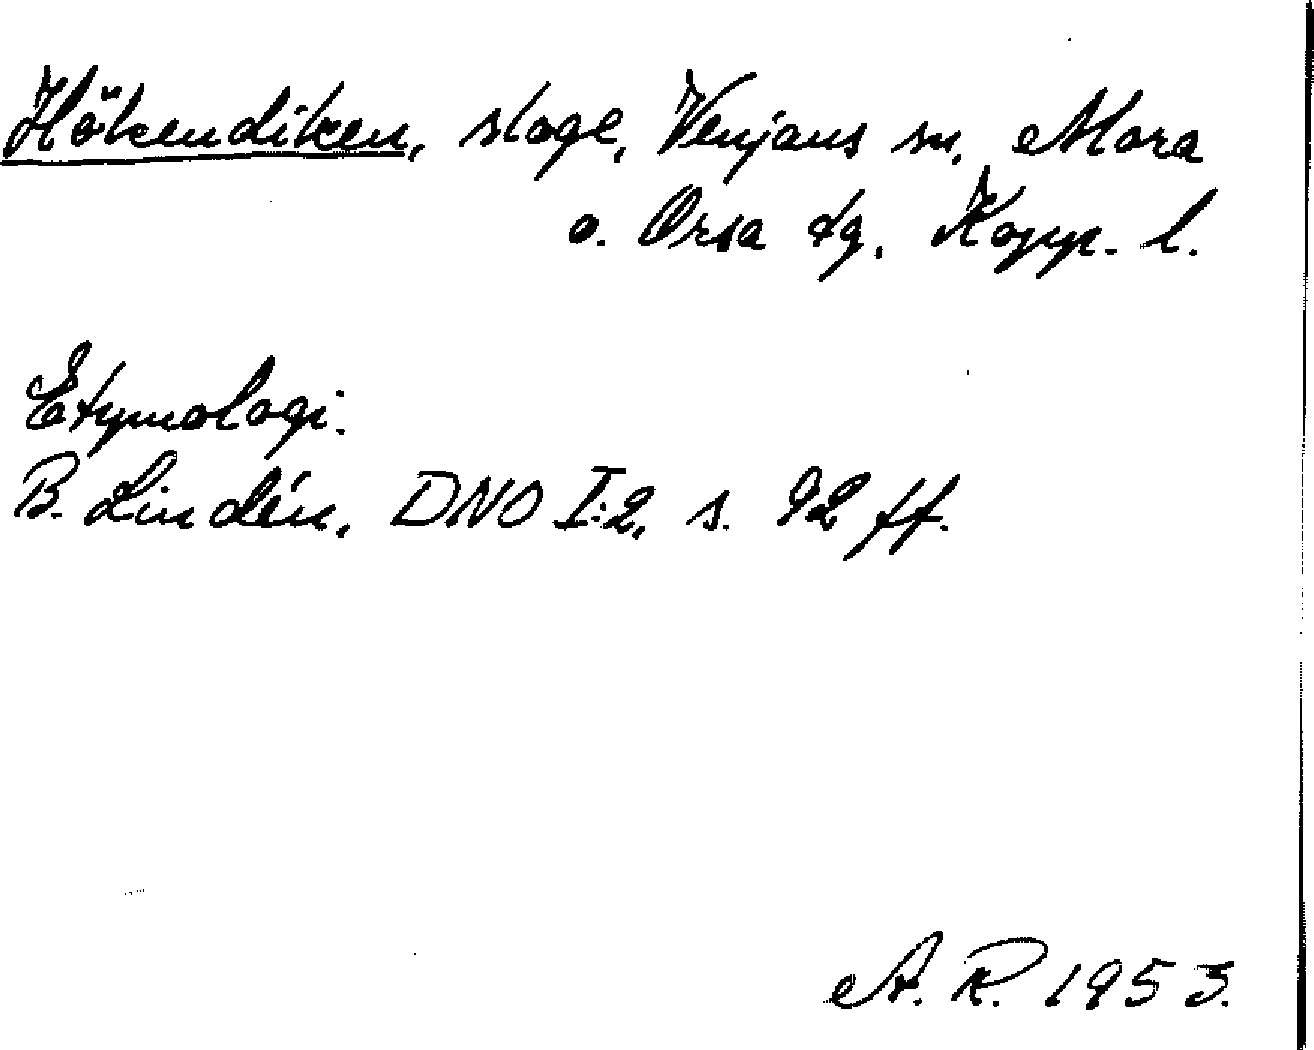 Hökendiken, sloge, Venjans sn, Mora
o. Orsa tg, Kopp. l.
Etymologi.
B. Lindén, DNO I:2, s. 92 ff.
A. R. 1953.